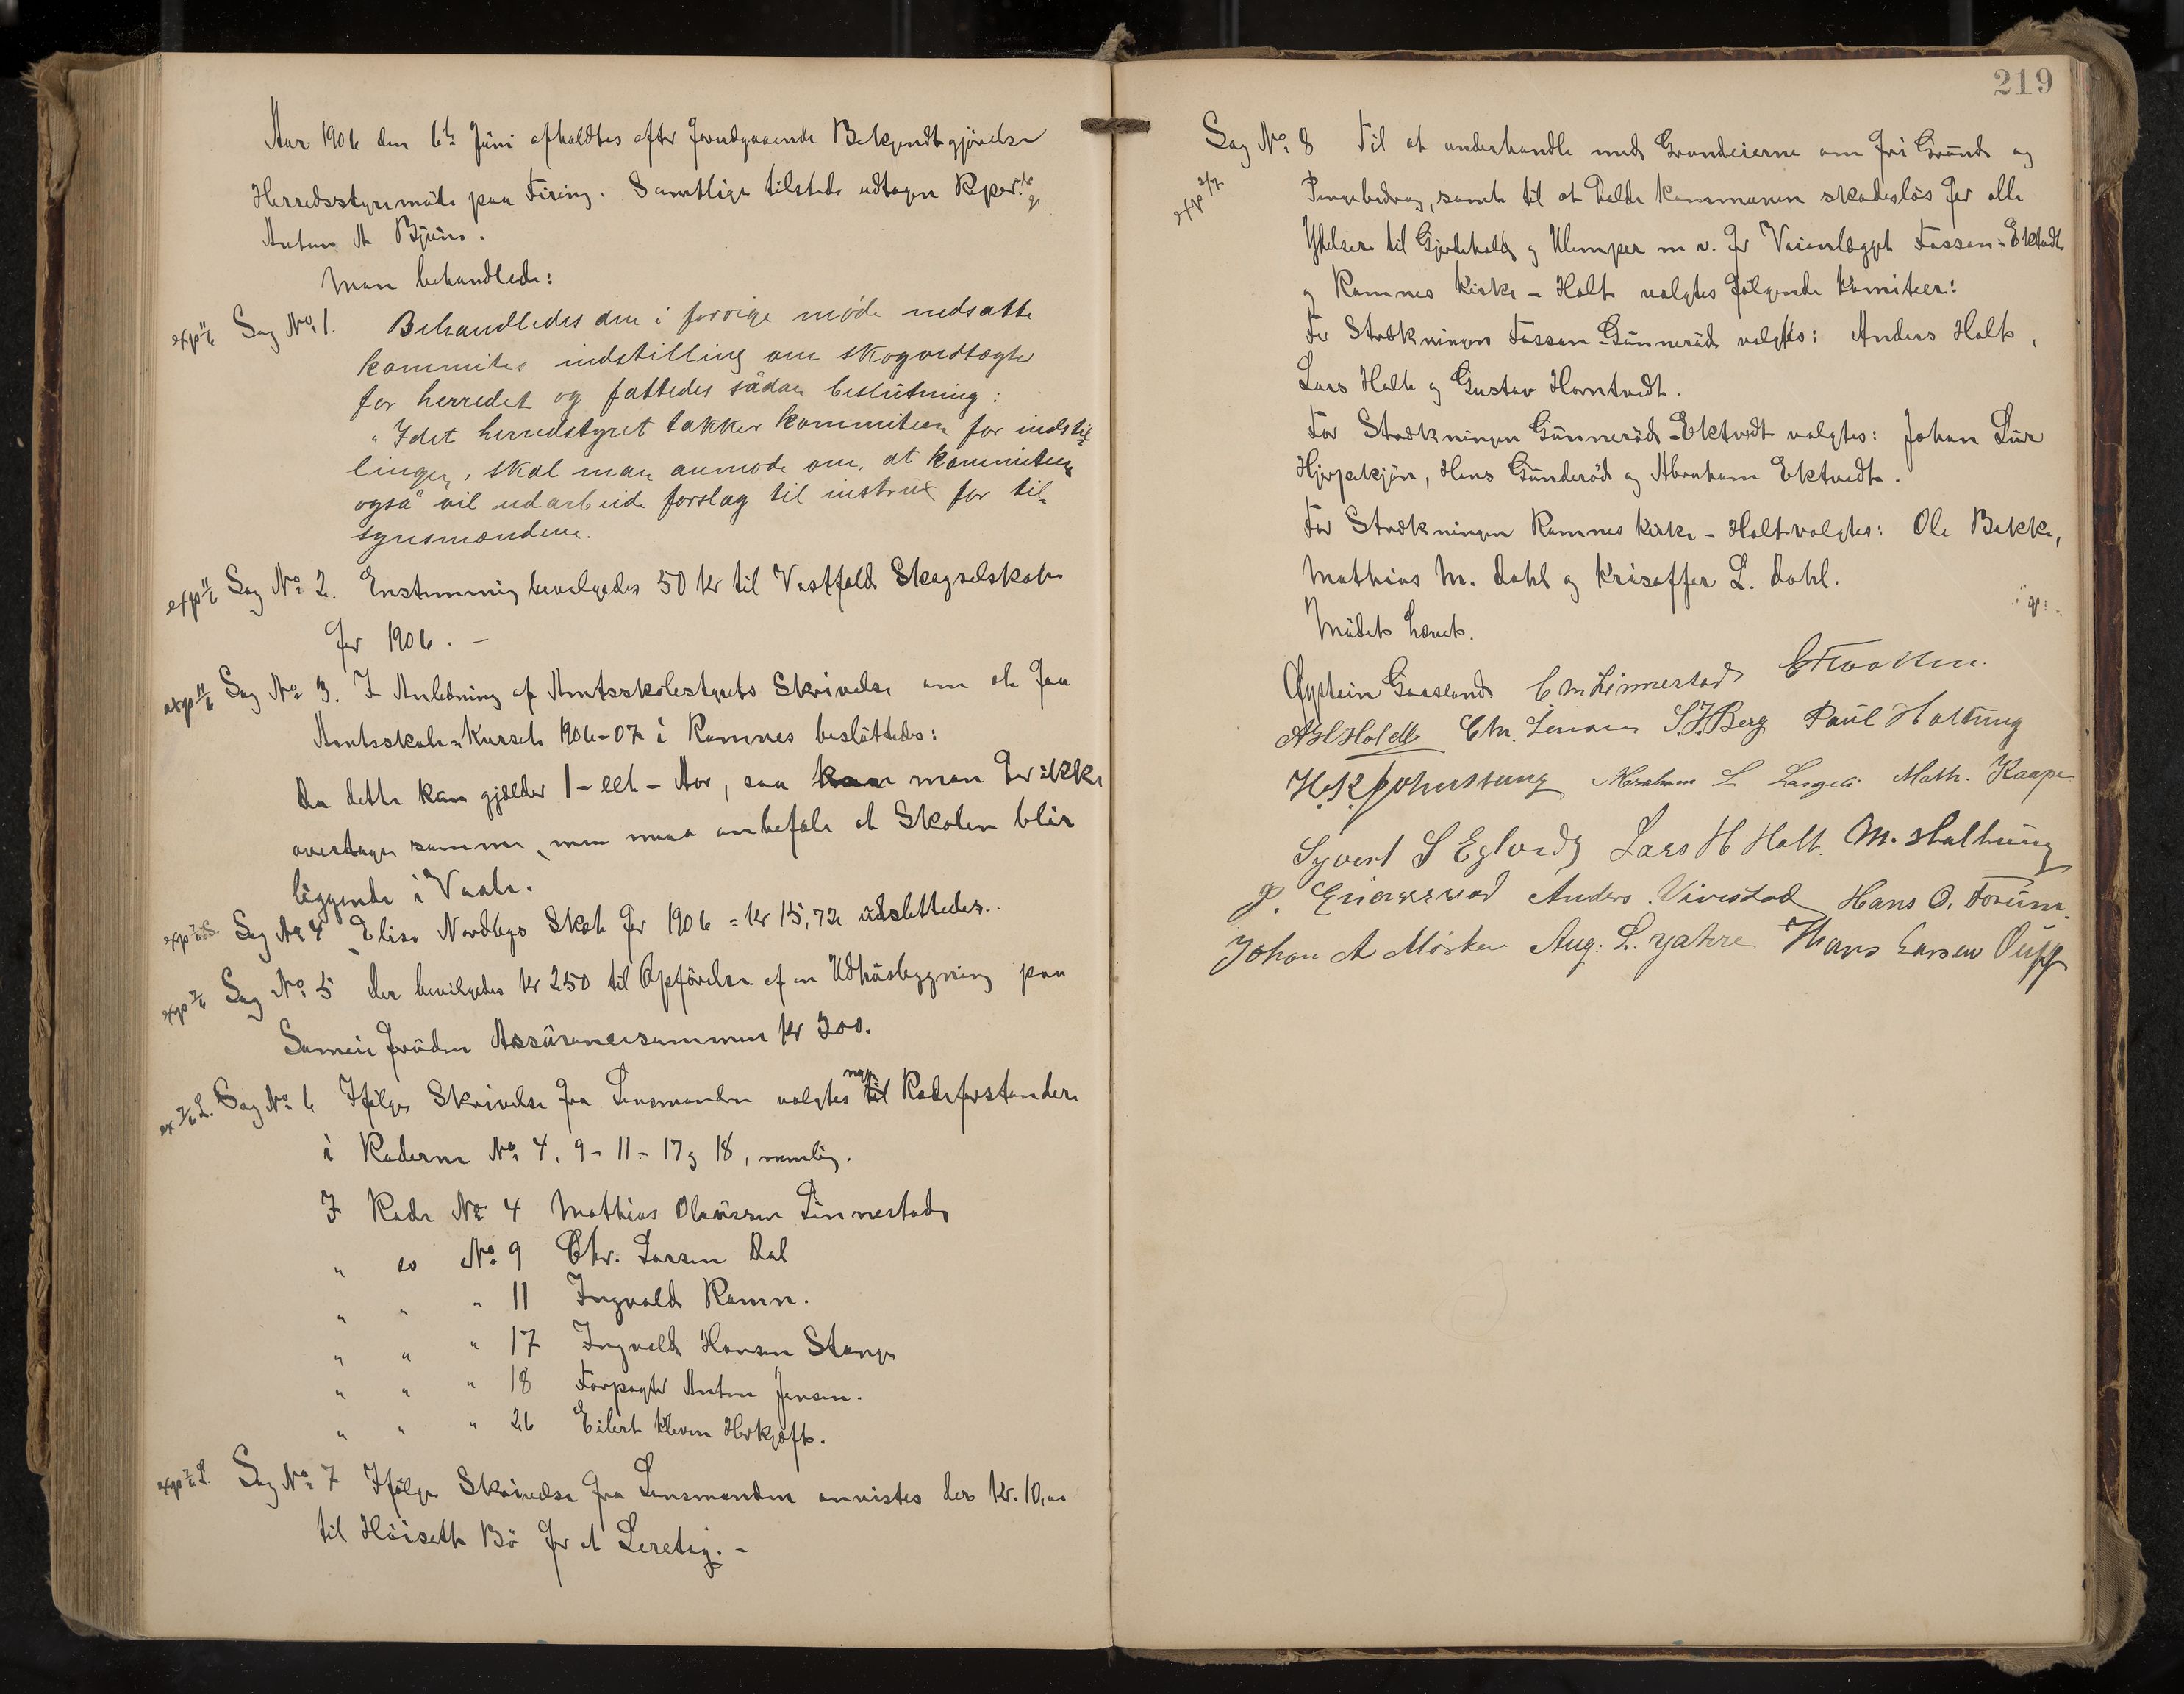 Aar 1906 den 6te Juni afholdtes efter forudgaaende Bekjendtgjørelse
Herredsstyremøde paa Firing. Samtlige tilstede udtagen Rpr.
Anton A Bjune.
Man behandlede:
exp 11/6 Sag No 1. Behandledes den i forrige møde nedsatte
kommites indstilling om skogvedtægter
for herredet og fattedes sådan beslutning:
"Idet herredstyret takker kommiteen for indstil-
lingen, skal man anmode om, at kommiteen
også vil udarbeide forslag til instrux for til-
synsmændene.
exp 11/6 Sag No 2. Enstemmig bevilgedes 50 Kr til Vestfold Skogselskab
for 1906. -
exp 11/6 Sag No 3. I Anledning af Amtsskolestyrets Skrivelse om at faa
Amtsskole-Kurset 1906-07 i Ramnes besluttedes:
Da dette kun gjælder 1 - eet - Aar, saa man for ikke
overtage samme, men maa anbefale at Skolen blir
liggende i Vaale.
exp Sag No 4 Elise Nordbys Skat for 1906 = Kr 15,72 udslettedes..
exp 7/6 Sag No 5 Der bevilgedes Kr 250 til Opførelse af en Udhusbygning paa
Sameie foruden Assurancesummen Kr 300.
ex 7/6 L. Sag No 6 Ifølge Skrivelse fra Lensmanden valgtes nye til Rodeforstandere
i Roderne No 4, 9 - 11 - 17 og 18, nemlig.
I Rode No 4 Mathias Olaussen Linnestad
" do No 9 Chr. Larsen Dal
" " " 11 Ingvald Ramn.
" " " 17 Ingvald Hansen Stange
" " " 18 Forpagter Anton Jensen.
" " " 26 Eilert Kleven Herkjøft.
exp 7/6 L. Sag No 7 Ifølge Skrivelse fra Lensmanden anvistes der Kr. 10,00
til Høiseth Bø for et Leretag. -
219
Sag No 8 Til at underhandle med Grundeierne om fri Grund og
exp 2/7 Pengebidrag, samt til at holde Kommunen skadesløs for alle
Ydelser til Gjerdehold og Ulemper m v. for Veianlægget Fossan - Ektvedt
og Ramnes Kirke - Holt valgtes følgende Komiteer:
For Strækningen Fossan - Gunnerød valgtes: Anders Holt,
Lars Holt og Gustav Horntvedt.
For Strækningen Gunnerød - Ektvedt valgtes: Johan Lur
Hjerpekjøn, Hans Gunderød og Abraham Ektvedt.
For Strækningen Ramnes Kirke - Holt valgtes: Ole Bakke,
Mathias M. Dahl og Krisoffer L. Dahl.
Mødet hævet.
Øystein Gaasland C M Linnestad
Chr. S. J. Berg Paul Holtung
Johnstung Abraham L Math. Kaape
Syvert S Eglvedt Lars H Holt. M. Haltung
Anders Virestad Hans O. Forum.
Johan A Mørken Aug: L. Jahre Hans Larsen